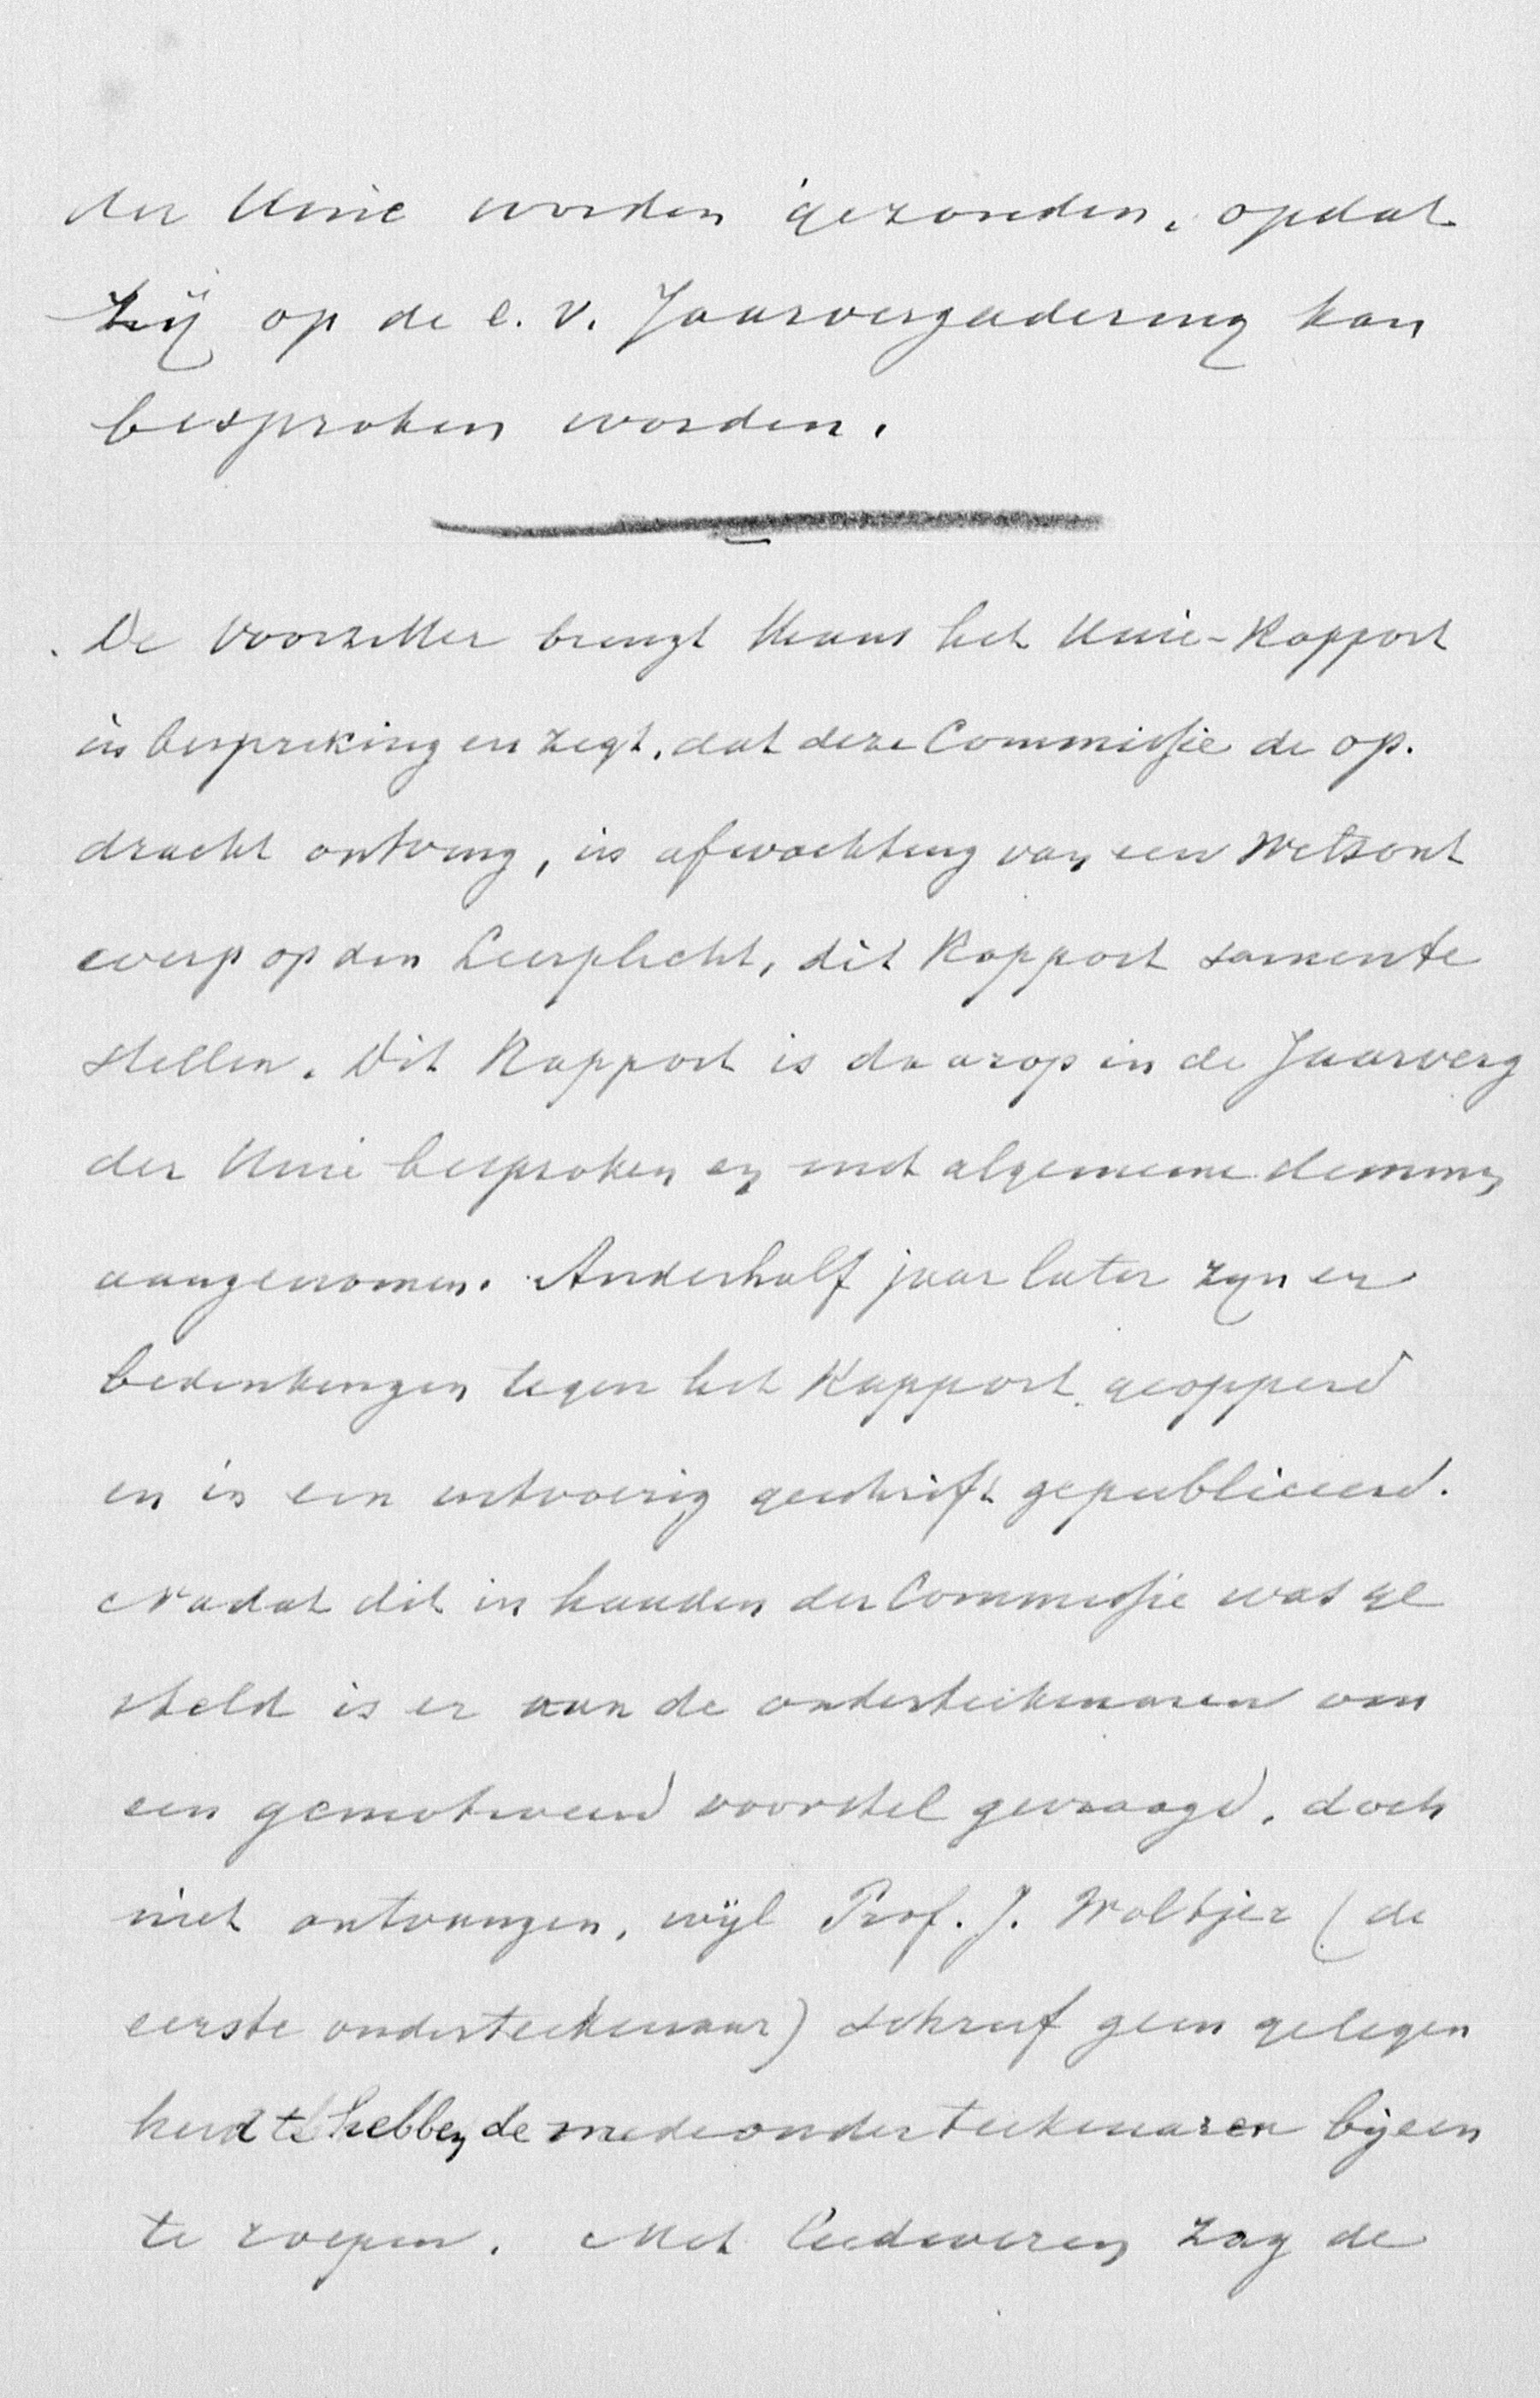 der Unie worden gezonden, opdat
zij op de e. v. Jaarvergadering kan
besproken worden.
De Voorzitter brengt thans het Unie-Rapport
in bespreking en zegt, dat deze Commissie de op-
dracht ontving, in afwachting van een Wetsont
werp op den Leerplicht, dit Rapport samen te
stellen. Dit Rapport is daarop in de Jaarverg
der Unie besproken en met algemeene stemmen
aangenomen. Anderhalf jaar later zijn er
bedenkingen tegen het Rapport geopperd
en in een uitvoerig geschrift gepubliceerd.
Nadat dit in handen der Commissie was ge
steld is er aan de onderteekenaren om
een gemotiveerd voorstel gevraagd, doch
niet ontvangen, wijl Prof. J. Woltjer (de
eerste onderteekenaar) schreef geen gelegen
heid te hebben de medeonderteekenaren bijeen
te roepen. Met leedwezen zag de